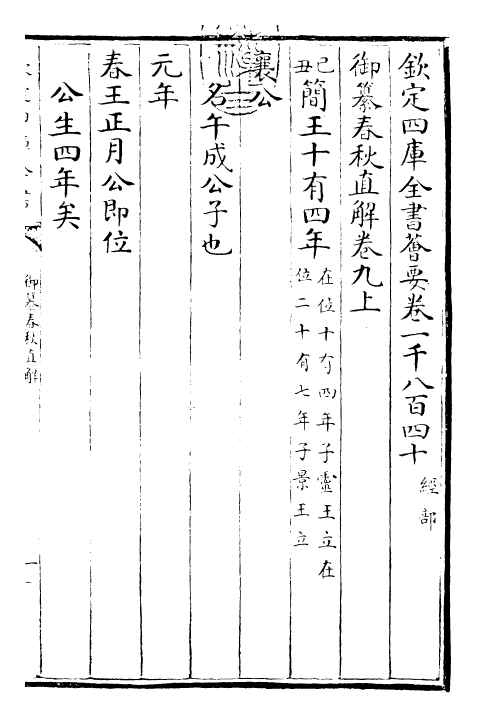 欽定四庫全書薈要卷一千八百四十 經部
御纂春秋直解卷九上
襄公
名午成公子也
己丑 簡王十有四年 在位十有四年子靈王立在位二十有七年子景王立
元年
春王正月公即位
公生四年矣
御纂春秋直解
一